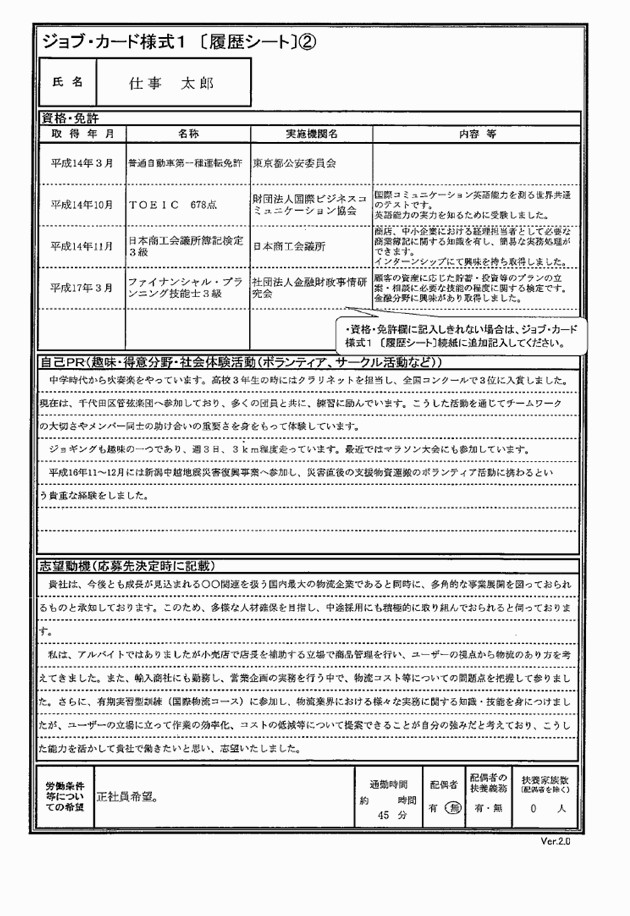 ジョブ・カード様式1 〔履歴シート〕②
氏 名
仕事 太郎
資格・免許
取 得 年 月 名称 実施機関名 内容 等
平成14年3月 普通自動車第一種運転免許 東京都公安委員会
平成14年10月 TOEIC 678点 財団法人国際ビジネスコ
ミュニケーション協会
国際コミュニケーション英語能力を測る世界共通
のテストです。
英語能力の実力を知るために受験しました。
平成14年11月 日本商工会議所簿記検定
3級
日本商工会議所
商店、中小企業における経理担当者として必要な
商業簿記に関する知識を有し、簡易な実務処理が
できます。
インターンシップにて興味を持ち取得しました。
平成17年3月 ファイナンシャル・プラ
ンニング技能士3級
社団法人金融財政事情研
究会
顧客の資産に応じた貯蓄・投資等のプランの立
案・相談に必要な技能の程度に関する検定です。
金融分野に興味があり取得しました。
・資格・免許欄に記入しきれない場合は、ジョブ・カード
様式1 〔履歴シート〕続紙に追加記入してください。
自己PR(趣味・得意分野・社会体験活動(ボランティア、サークル活動など))
中学時代から吹奏楽をやっています。高校3年生の時にはクラリネットを担当し、全国コンクールで3位に入賞しました。
現在は、千代田区管弦楽団へ参加しており、多くの団員と共に、練習に励んでいます。こうした活動を通じてチームワーク
の大切さやメンバー同士の助け合いの重要さを身をもって体験しています。
ジョギングも趣味の一つであり、週3日、3km程度走っています。最近ではマラソン大会にも参加しています。
平成16年11〜12月には新潟中越地震災害復興事業へ参加し、災害直後の支援物資運搬のボランティア活動に携わるとい
う貴重な経験をしました。
志望動機(応募先決定時に記載)
貴社は、今後とも成長が見込まれる〇〇関連を扱う国内最大の物流企業であると同時に、多角的な事業展開を図っておられ
るものと承知しております。このため、多様な人材確保を目指し、中途採用にも積極的に取り組んでおられると伺っておりま
す。
私は、アルバイトではありましたが小売店で店長を補助する立場で商品管理を行い、ユーザーの視点から物流のあり方を考
えてきました。また、輸入商社にも勤務し、営業企画の実務を行う中で、物流コスト等についての問題点を把握して参りまし
た。さらに、有期実習型訓練(国際物流コース)に参加し、物流業界における様々な実務に関する知識・技能を身につけまし
たが、ユーザーの立場に立って作業の効率化、コストの低減等について提案できることが自分の強みだと考えており、こうし
た能力を活かして貴社で働きたいと思い、志望いたしました。
労働条件
等につい
ての希望
正社員希望。
通勤時間
約 時間
45 分
配偶者
有 無
配偶者の
扶養義務
有・無
扶養家族数
(配偶者を除く)
0 人
Ver.2.0